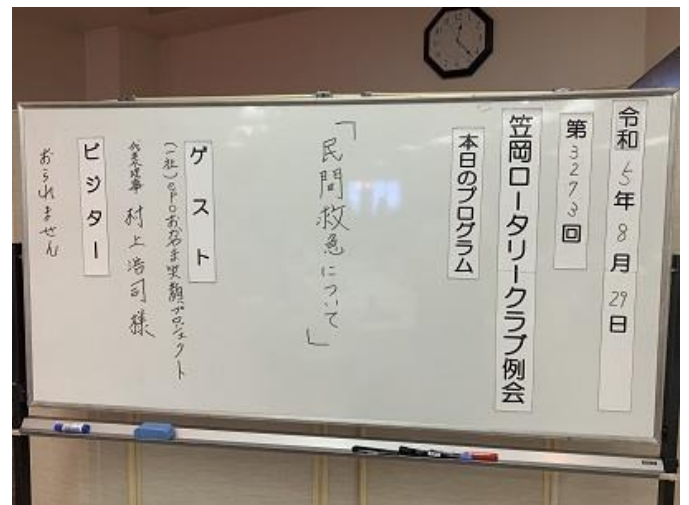 令和5年8月29日
第3273回
笠岡ロータリークラブ例会
本日のプログラム
「民間救急について」
ゲスト
(一社)OPOおかやま笑顔プロジェクト
代表理事 村上浩司様
ビジター
おられません